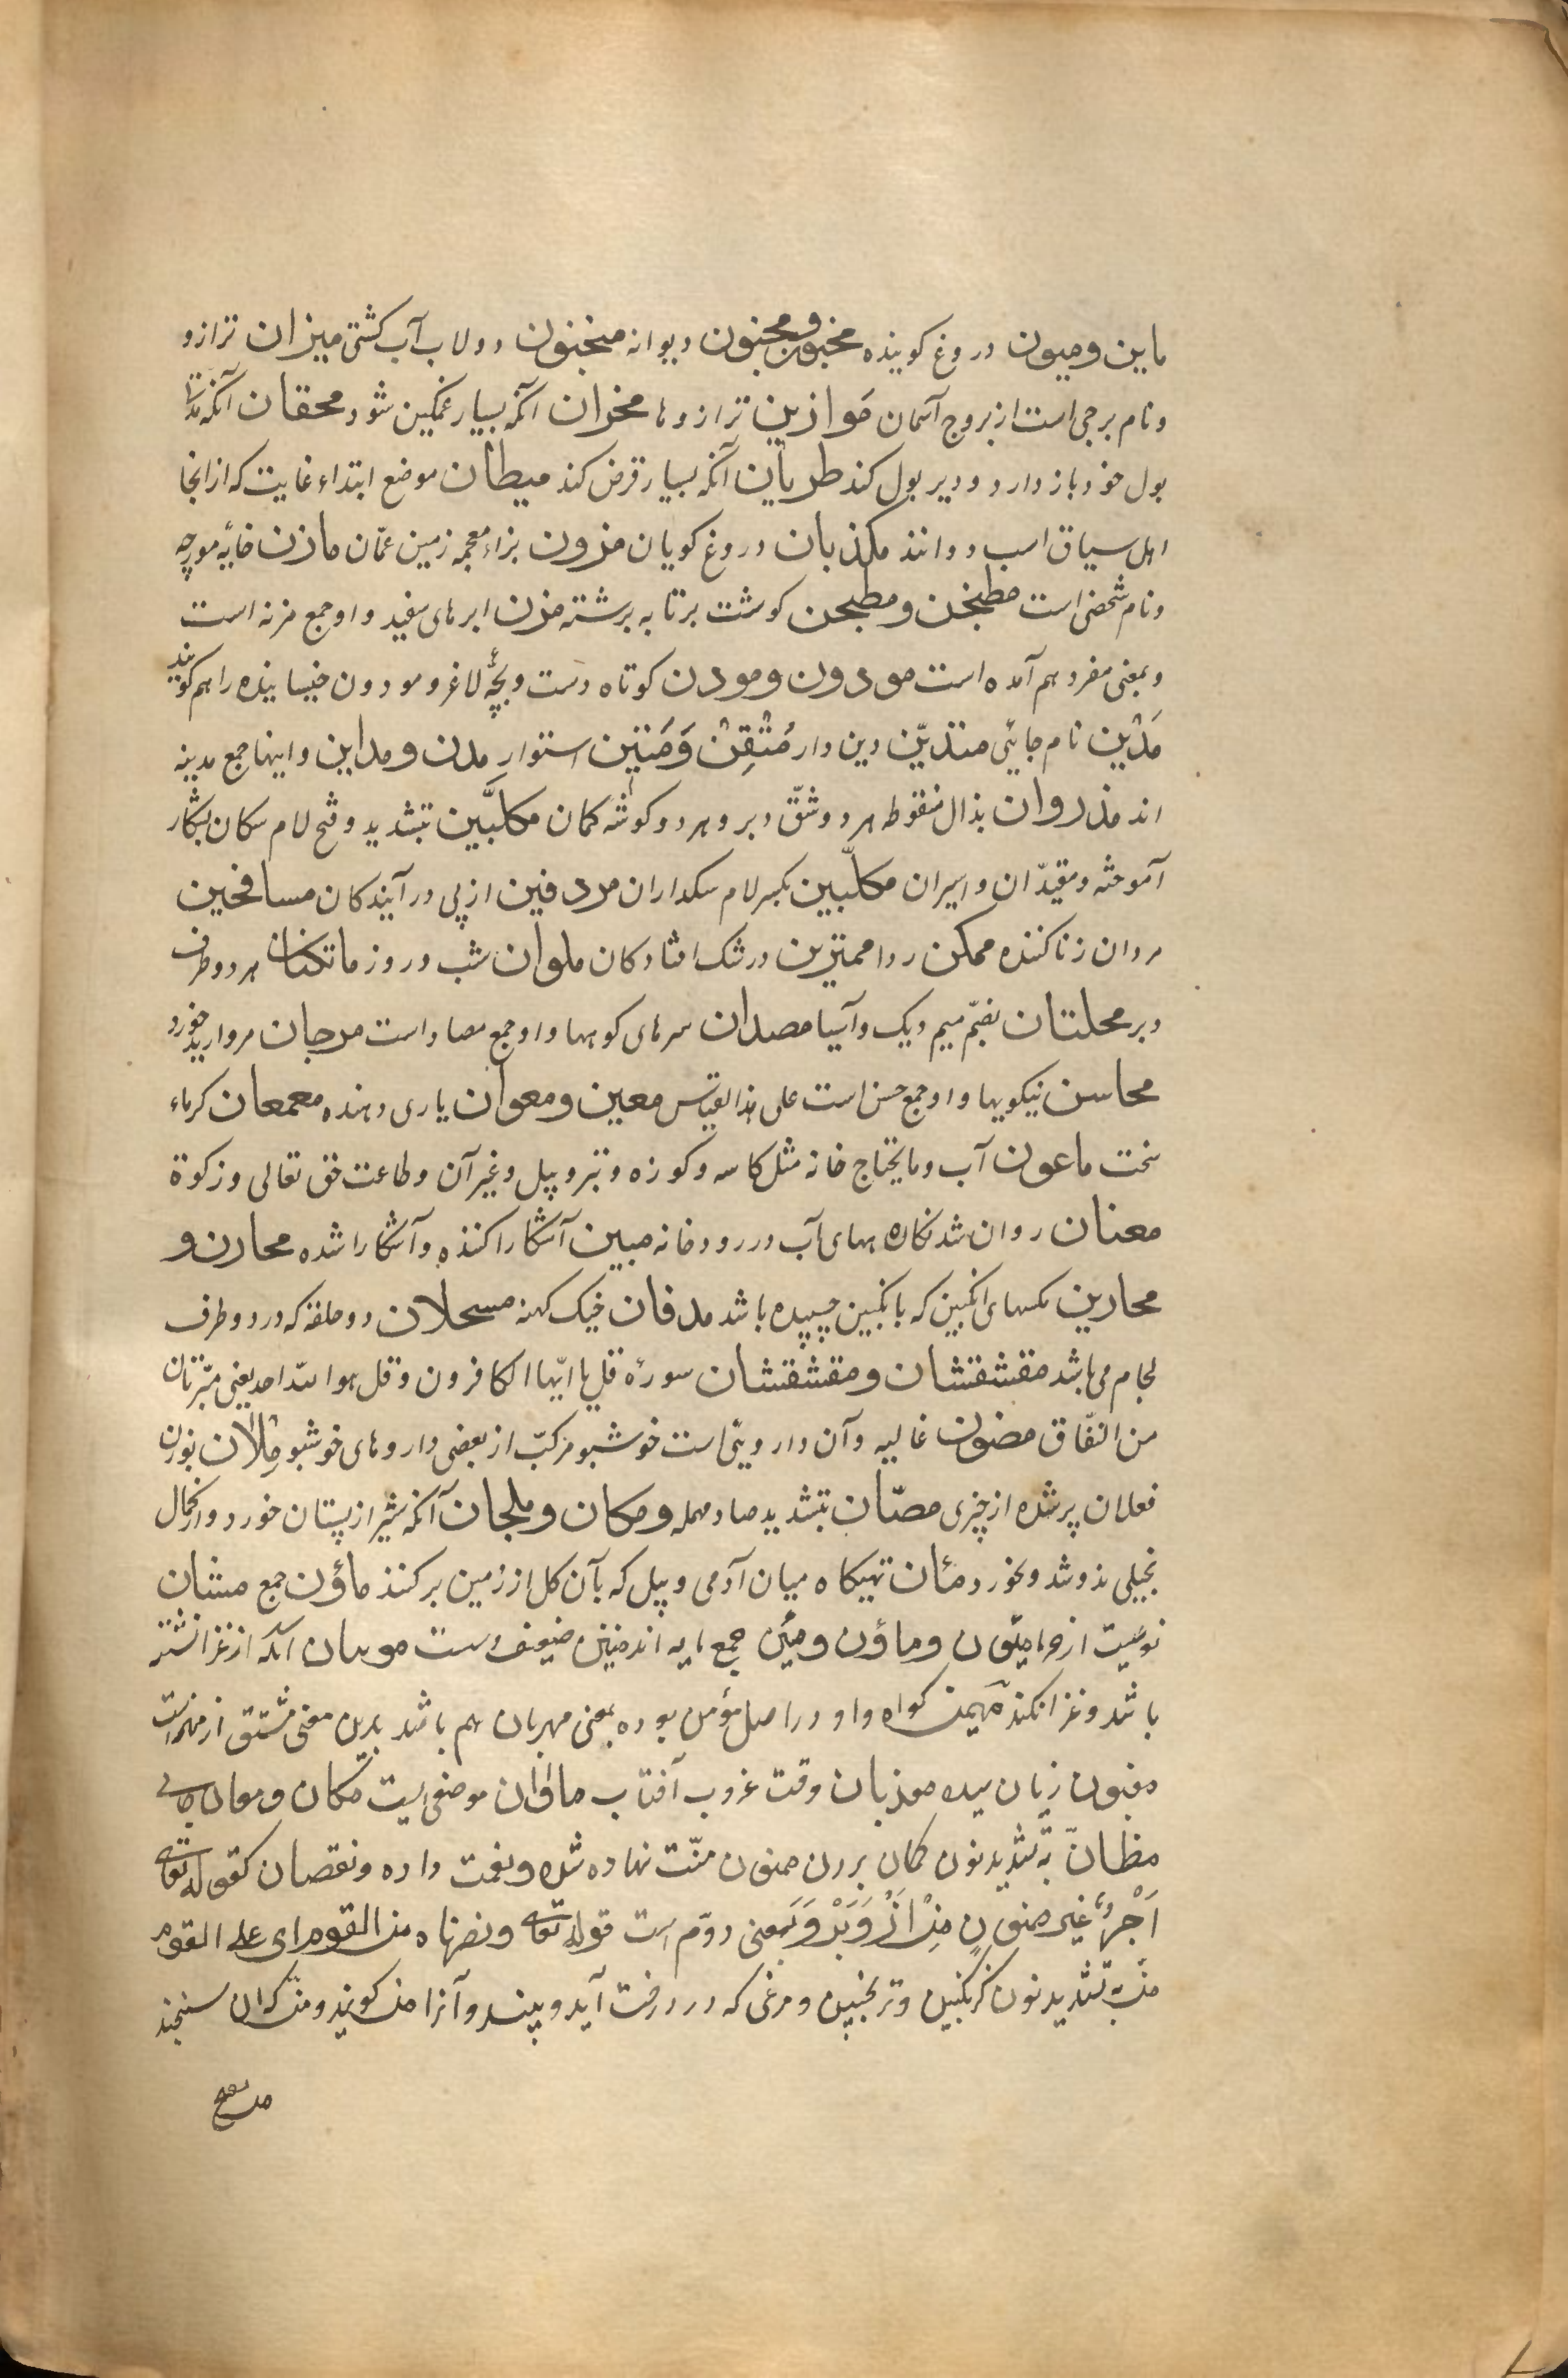 ماین و میون دروغ کوینده مخبون و مجنون دیوانه منجنون دولاب آب کشتی میزان ترازو
و نام برجی است از بروج آسمان مَوازین ترازوها محزان آنکه بسیار غمکین شود محقان آنکه مدتها
بول خود باز دارد و دیر بول کند طربان آنکه بسیار قرض کند میطان موضع ابتداء غایت که از انجا
اهل سیاق اسب دوانند مکذبان دروغ کویان مزون بزاء معجمه زمین عمّان مازن خایهٔ مورچه
و نام شخصی است مطنجن و مطجن کوشت برتابه برشته مزن ابرهای سفید و او جمع مزنه است
و بمعنی مفرد هم آمده است مودون و مودن کوتاه دست و بچّهٔ لاغر و مودون خیسانیده را هم کویند
مَدْیَن نام جائی متدیّن دین دار مُتْقِنْ وَمَتین استوار مدن و مداین و اینها جمع مدینه
اند مذروان بذال منقوطه هر دو شقّ دبر و هر دو کوشهٔ کمان مکلَّبین بتشدید و فتح لام سکان بشکار
آموخته و مقیدّان و اسیران مکلّبین بکسر لام سکداران مردفین از پی در آیندکان مسافحین
مردان زنا کننده ممکن روا ممترین در شک افتادکان ملوان شب و روز ماتکنان هر دو طرف
دبر محلتان بضمّ میم دیک و آسیا مصدان سرهای کوهها و او جمع مصاد است مرجان مروارید خورد
محاسن نیکویها و او جمع حسن است علی هذا القیاس معین و معوان یاری دهنده معمعان کرماء
سخت ماعون آب و مایحتاج خانه مثل کاسه و کوزه و تبر و بیل و غیر آن و طاعت حق تعالی و زکوة
معنان روان شدنکاه بهای آب در رودخانه مبین آشکارا کننده و آشکارا شده محارن و
محارین مکسهای انکبین که بانکبین چسپیده باشد مدفان خیک کهنه مسحلان دو حلقه که در دو طرف
لجام می باشد مقشقشان و مقشقشان سورهٔ قل یا ایّها الکافرون و قل هو الله احد یعنی مبّرئتان
من النّفاق مضنون غالیه و آن داروئی است خوشبو مرکبّ از بعضی داروهای خوشبو مِلْاٰن بوزن
فعلان پر شده از چیزی مصّان بتشدید صاد مهمله و مکان و ملجان آنکه شیر از پستان خورد و از کمال
بخیلی ندوشد و بخورد مئان تهیکاه میان آدمی و بیل که بآن کل از زمین برکنند ماؤن جمع مشان
نوعیست از خرما مئون و ماؤن و مئین جمع مایه اند منین ضعیف و ست موسان آنکه از غزا نشته
باشد و غزا نکند مهیمن کواه و او در اصل مؤمن بوده بمعنی مهربان هم باشد بدین معنی مشتق از است
مغبون زیان موذبان وقت غروب آفتاب ماوان موضعی است مکان و معان جای
مظانّ به تشدید نون کمان بردن ممنون منّت نهاده شده و نعمت داده و نقصان کقوله تعالی
اَجْرٌ غیر ممنون مِنْ اَزْ وَبَرْ و بمعنی دوّم است قوله تعالی و نصرناه من القوم ای علی القوم
منّ به تشدید نون کزنکبین و ترنجبین و مرغی که در درخت آید و بیند و آنرا من کویند و من که ان سنجند